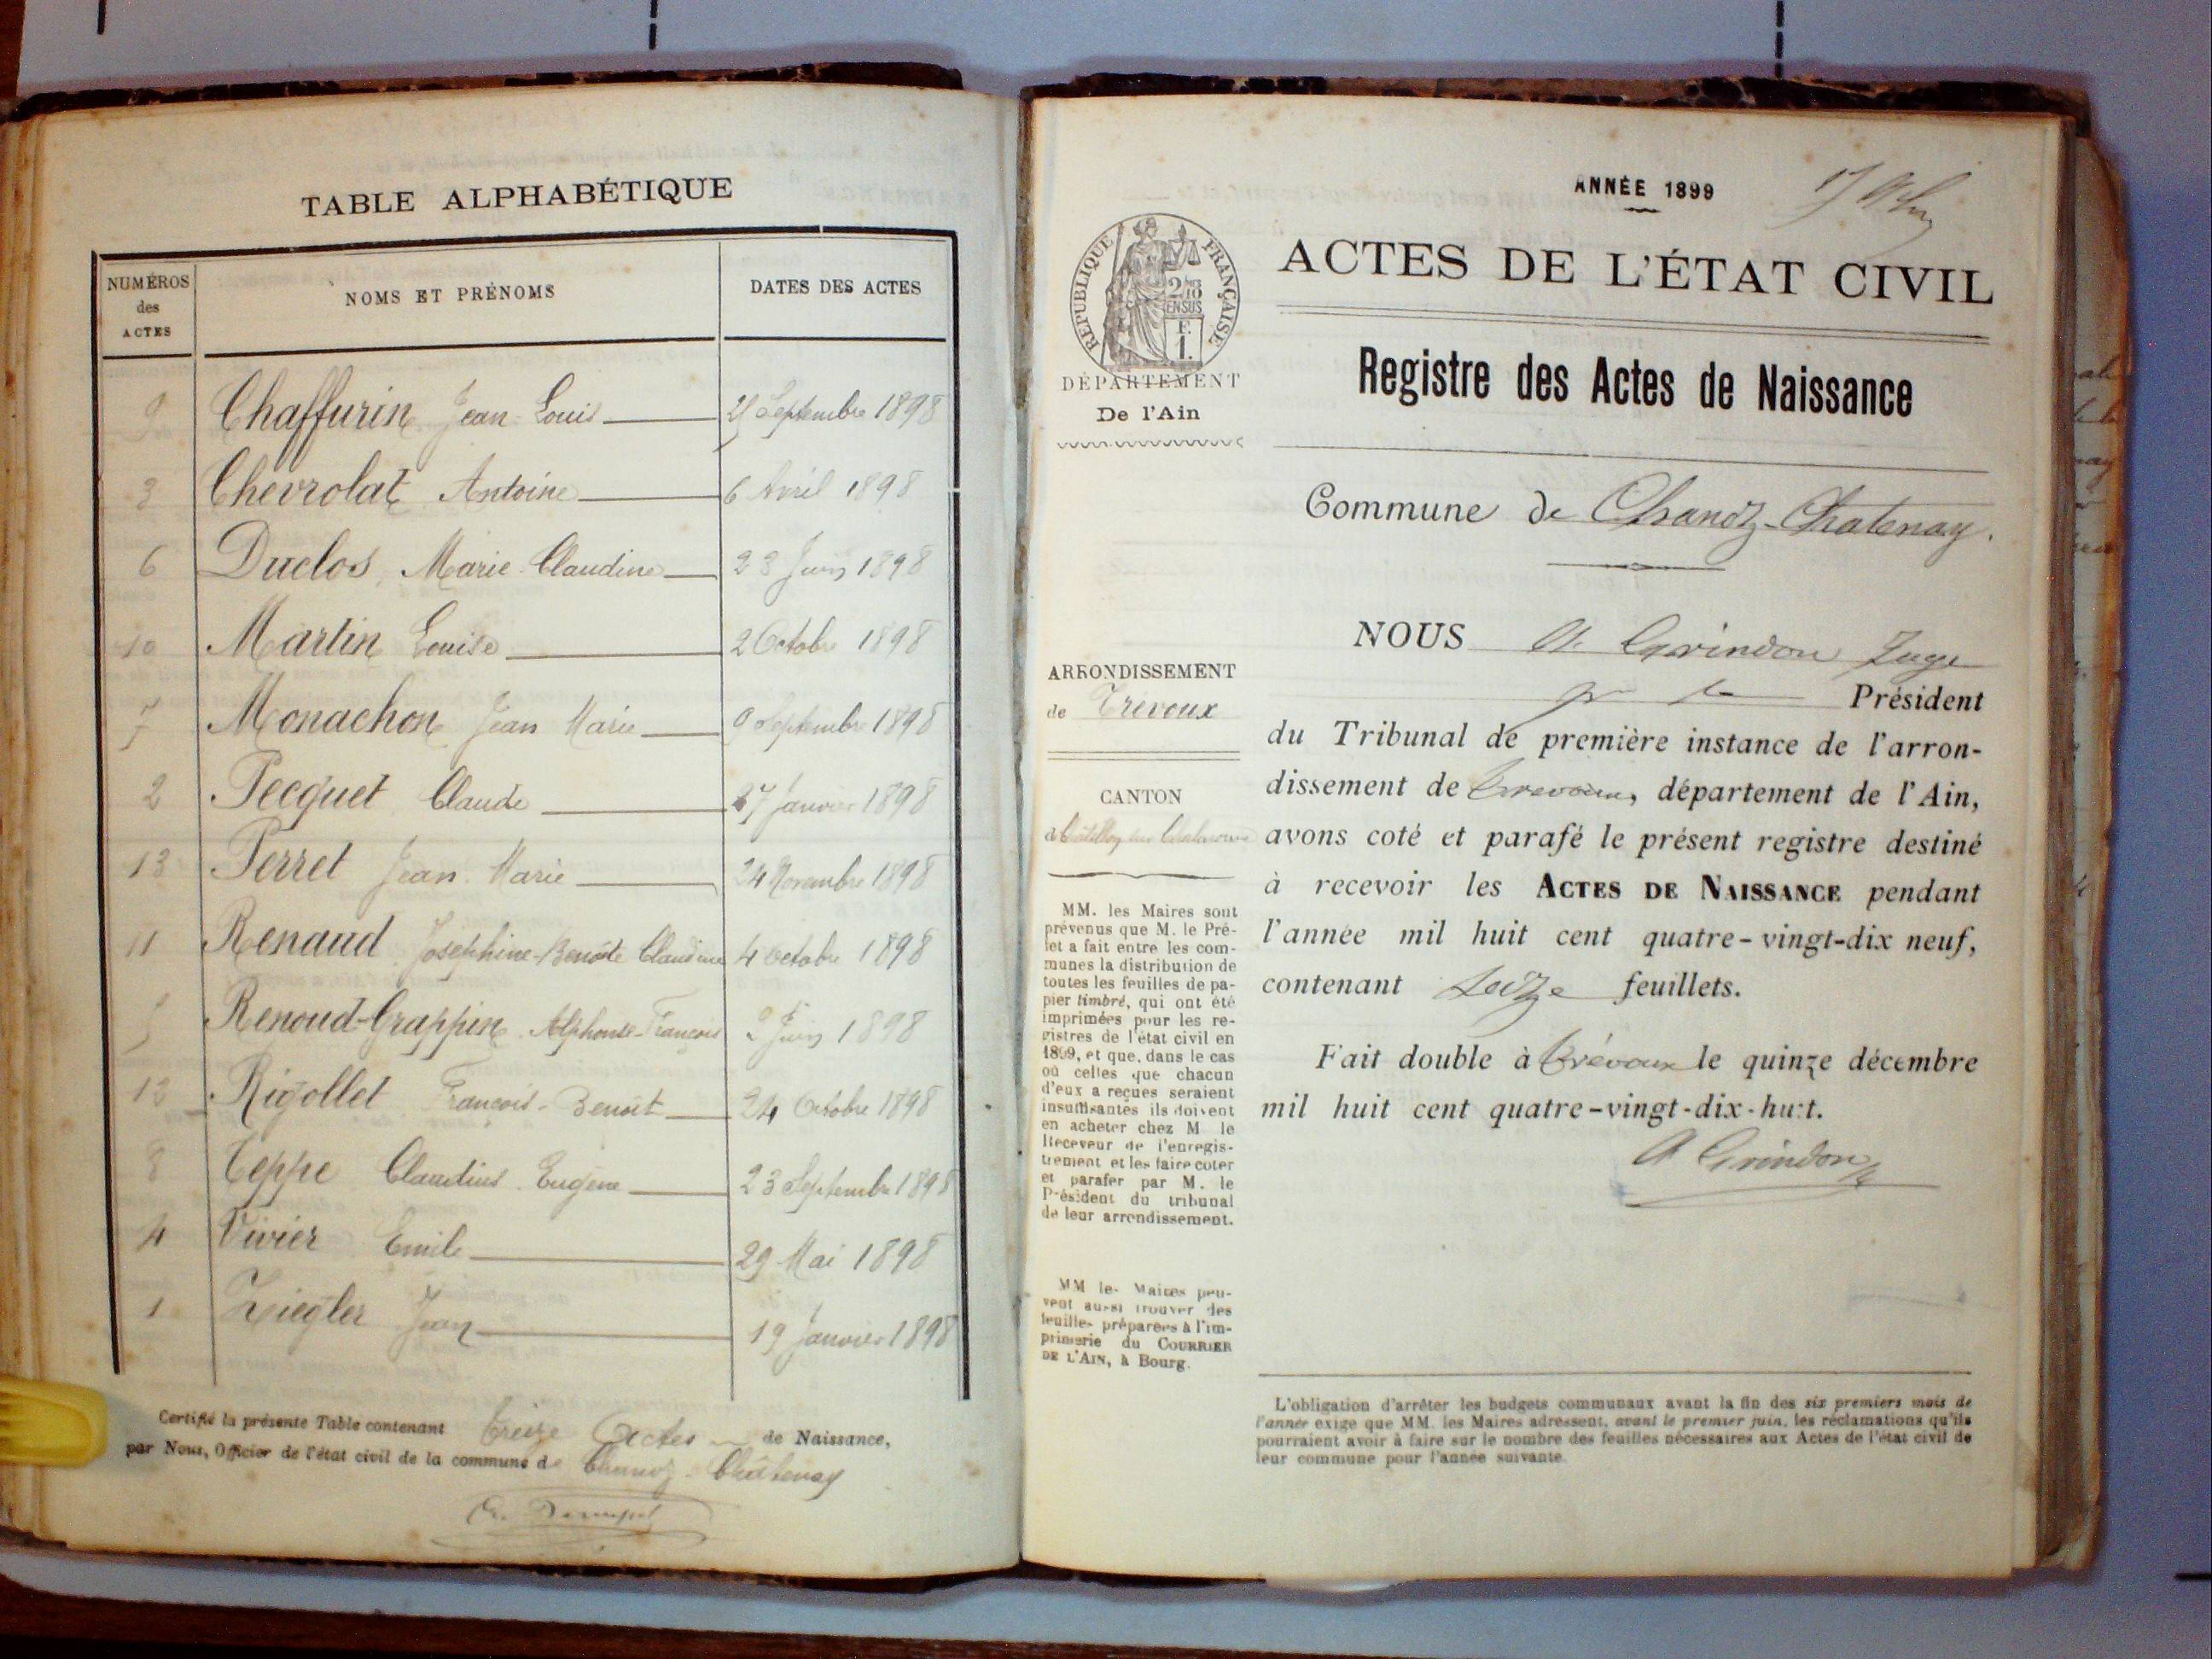 TABLE ALPHABÉTIQUE
NUMÉROS
des
ACTES
NOMS ET PRÉNOMS
DATES DES ACTES
9 Chaffurin Jean-Louis Septembre 1898
3 Chevrolat Antoine 6 Avril 1898
6 Duclos Marie-Claudine 23 Juin 1898
10 Martin Louise 2 Octobre 1898
7 Monachon Jean Marie 9 Septembre 1898
2 Pecquet Claude 27 Janvier 1898
13 Perret Jean-Marie 24 Novembre 1898
11 Renaud Joséphine-Benoite Claudine 4 Octobre 1898
5 Renoud-Grappin Alphonse-François 2 Juin 1898
Rigollet François-Benoît 24 Octobre 1898
8 Teppe Claudius Eugène 23 Septembre 1898
4 Vivier Emile 29 Mai 1898
1 Ziegler Jean 19 Janvier 1898
Certifié la présente Table contenant treize Actes de Naissance,
par Nous, Officier de l'état civil de la commune de Chanoz-Châtenay
ANNÉE 1899
RÉPUBLIQUE FRANÇAISE
DÉPARTEMENT
De l'Ain
ACTES DE L'ÉTAT CIVIL
Registre des Actes de Naissance
Commune de Chanoz-Chatenay.
ARRONDISSEMENT
de Trévoux
CANTON
MM. les Maires sont
prévenus que M. le Pré-
fet a fait entre les com-
munes la distribution de
toutes les feuilles de pa-
pier timbré, qui ont été
imprimées pour les re-
gistres de l'état civil en
1899, et que, dans le cas
où celles que chacun
d'eux a reçues seraient
insuffisantes ils doivent
en acheter chez M le
Receveur de l'enregis-
trement et les faire coter
et parafer par M. le
Président du tribunal
de leur arrondissement.
MM les Maires peu-
vent aussi trouver des
feuilles préparées à l'im-
primerie du COURRIER
DE L'AIN, à Bourg.
NOUS A. Grindon Juge
pr le Président
du Tribunal de première instance de l'arron-
dissement de Trevoux, département de l'Ain,
avons coté et parafé le présent registre destiné
à recevoir les ACTES DE NAISSANCE pendant
l'année mil huit cent quatre-vingt-dix neuf,
contenant seize feuillets.
Fait double à Trévoux le quinze décembre
mil huit cent quatre-vingt-dix-huit.
A Grindon
L'obligation d'arrêter les budgets communaux avant la fin des six premiers mois de
l'année exige que MM. les Maires adressent, avant le premier juin, les réclamations qu'ils
pourraient avoir à faire sur le nombre des feuilles nécessaires aux Actes de l'état civil de
leur commune pour l'année suivante.